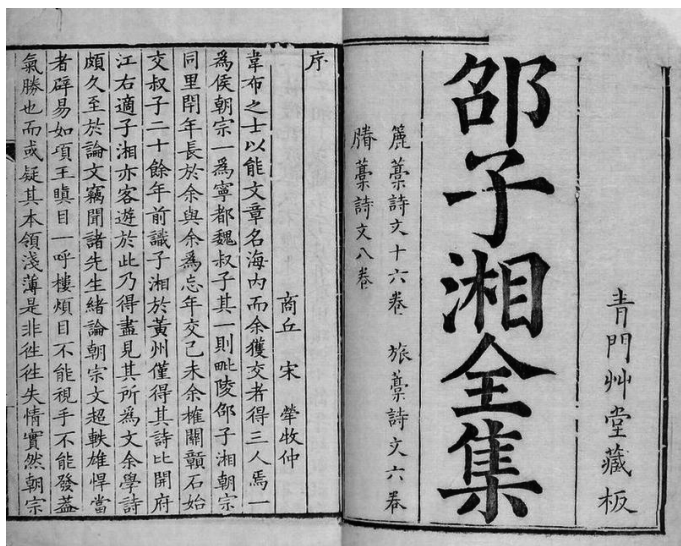 青門艸堂藏板
邵子湘全集
簏藁詩文十六卷 旅藁詩文六卷
賸藁詩文八卷
序
商丘 宋 犖牧仲
韋布之士以能文章名海内而余獲交者得三人焉一
爲侯朝宗一爲寧都魏叔子其一則毗陵邵子湘朝宗
同里閈年長於余與余爲忘年交己未余榷關贛石始
交叔子二十餘年前識子湘於黃州僅得其詩比開府
江右適子湘亦客遊於此乃得盡見其所爲文余學詩
頗久至於論文竊聞諸先生緒論朝宗文超軼雄悍當
者辟易如項王瞋目一呼樓煩目不能視手不能發葢
氣勝也而或疑其本領淺薄是非徃徃失情實然朝宗